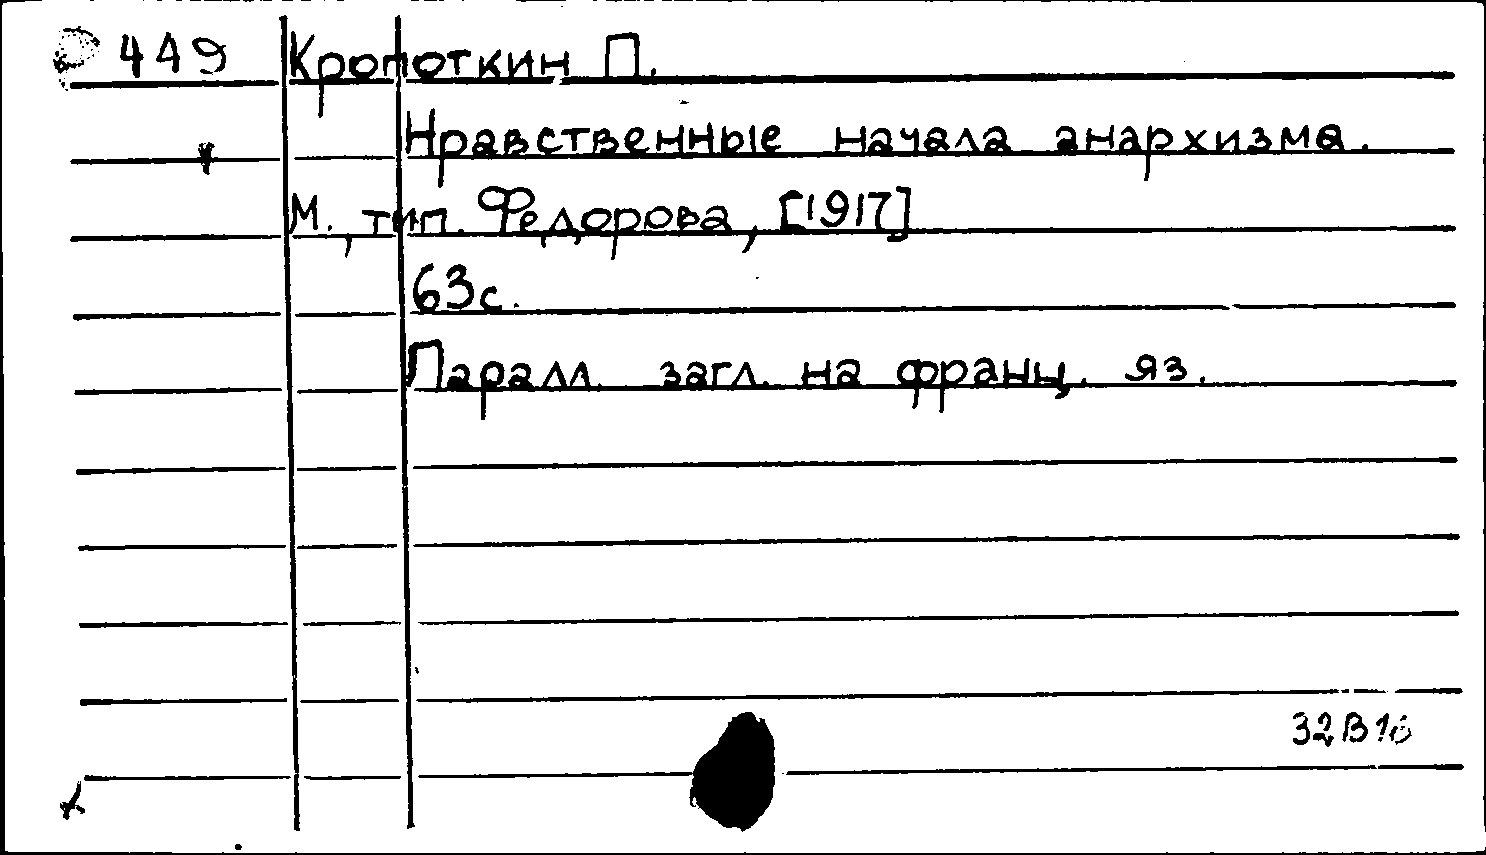 449 Кропоткин П.
Нравственные начала анархизма.
М., тип. Федорова, [1917]
63с.
Паралл. загл. на франц. яз.
32В16